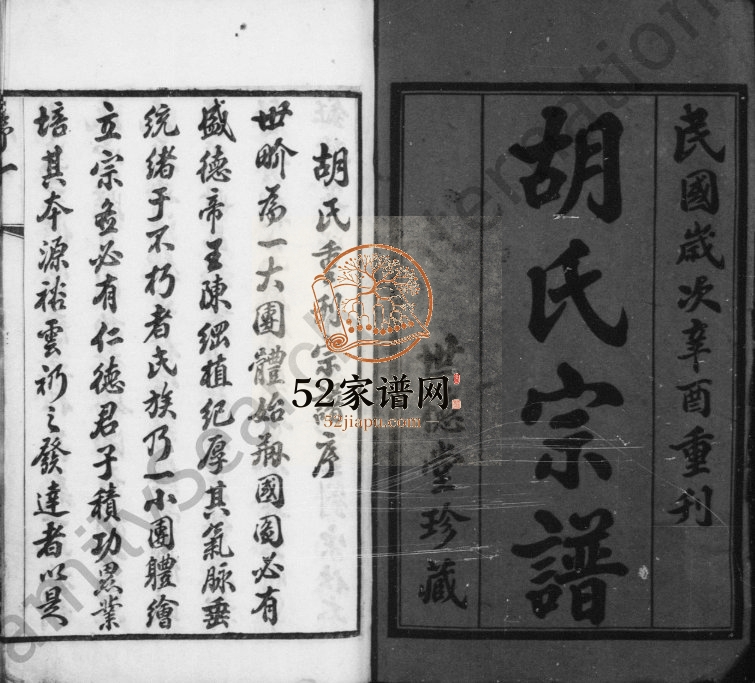 民國歲次辛酉重刊
胡氏宗譜
世德堂珍藏
胡氏重刊宗譜序
世畍為一大團體始翔國圖必有
盛德帝王陳綱植紀厚其氣脉垂
統緒于不朽者民族乃一小團體繪
立宗啚必有仁德君子積功累業
培其本源裕雲礽之發達者以是
52家谱网
52jiapu.net
FamilySearch International